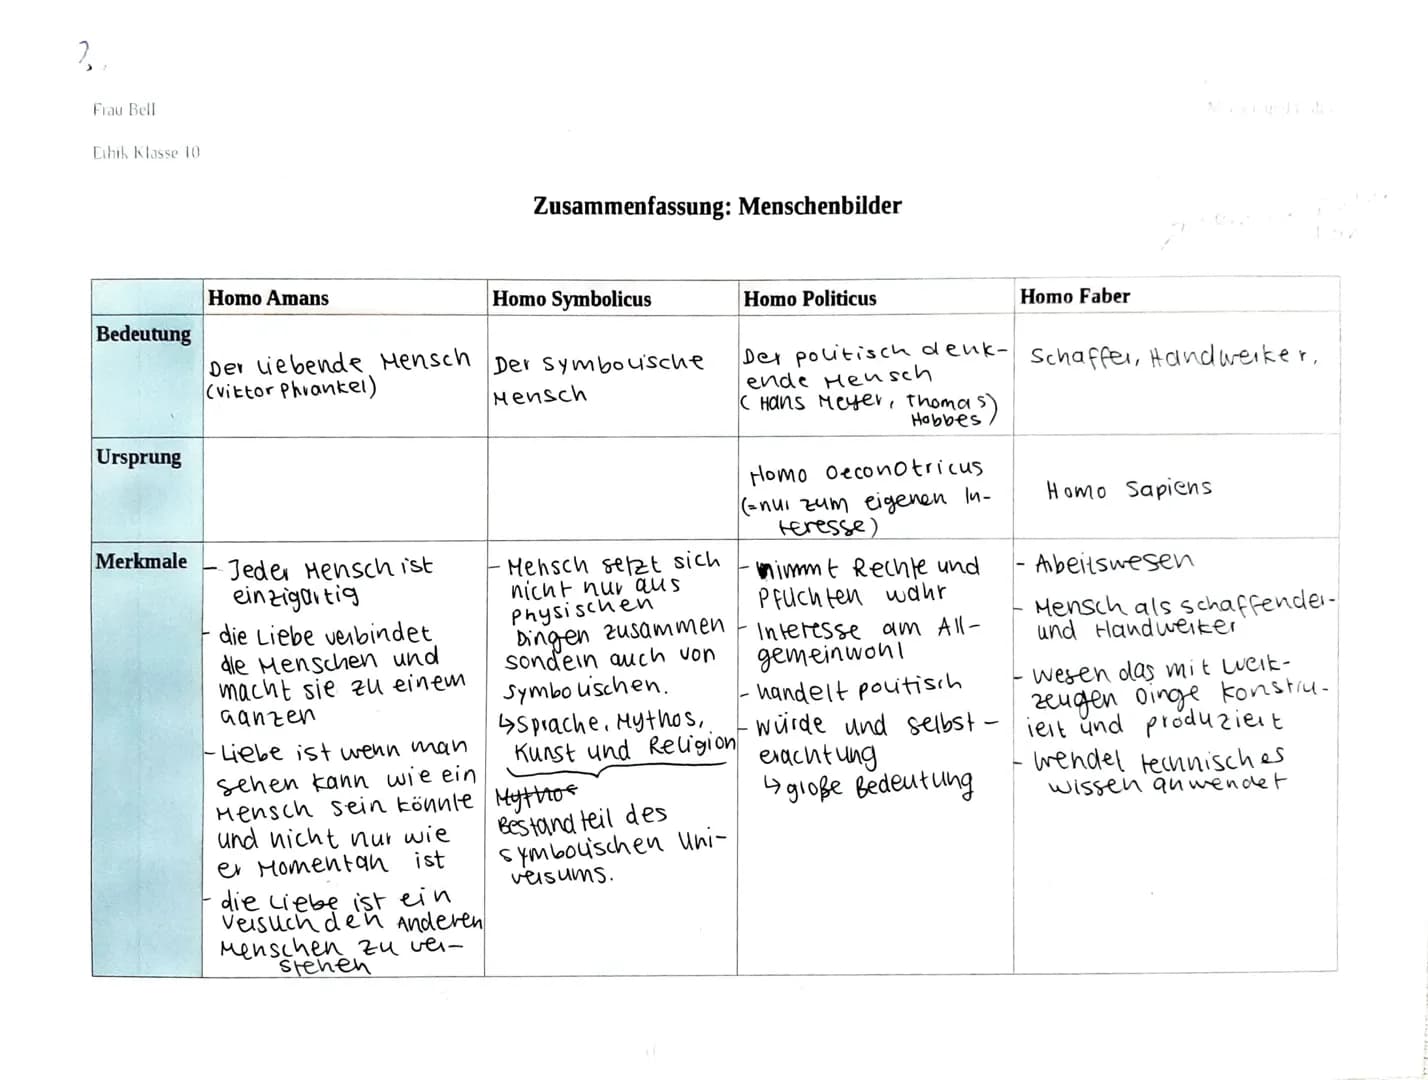 2.
Frau Bell
Ethik Klasse 10
Zusammenfassung: Menschenbilder
Homo Amans
Homo Symbolicus
Homo Politicus
Homo Faber
Bedeutung
Der liebende Mensch
(Viktor Phrankel)
Der symbolische
Mensch
Der politisch denk-
ende Mensch
(Hans Meyer, Thomas
Hobbes)
Schaffer, Handwerker,
Ursprung
Homo Oeconotricus
(=nur zum eigenen In-
teresse)
Homo Sapiens
Merkmale
- Jeder Mensch ist
einzigartig
- die Liebe verbindet
die Menschen und
macht sie zu einem
ganzen
- Liebe ist wenn man
sehen kann wie ein
Mensch sein könnte
und nicht nur wie
er Momentan ist
- die Liebe ist ein
Versuch den Anderen
Menschen zu ver-
stehen
- Mensch setzt sich
nicht nur aus
physischen
Dingen zusammen
sondern auch von
symbolischen.
↳ Sprache, Mythos,
Kunst und Religion
Mythos
Bestandteil des
symbolischen Uni-
versums.
- nimmt Rechte und
Pflichten wahr
- Interesse am All-
gemeinwohl
- handelt politisch
- Würde und selbst-
erachtung
↳ große Bedeutung
- Arbeitswesen
- Mensch als schaffender-
und Handwerker
- wesen das mit Werk-
zeugen Dinge konstru-
iert und produziert
- wendet technisches
wissen anwendet